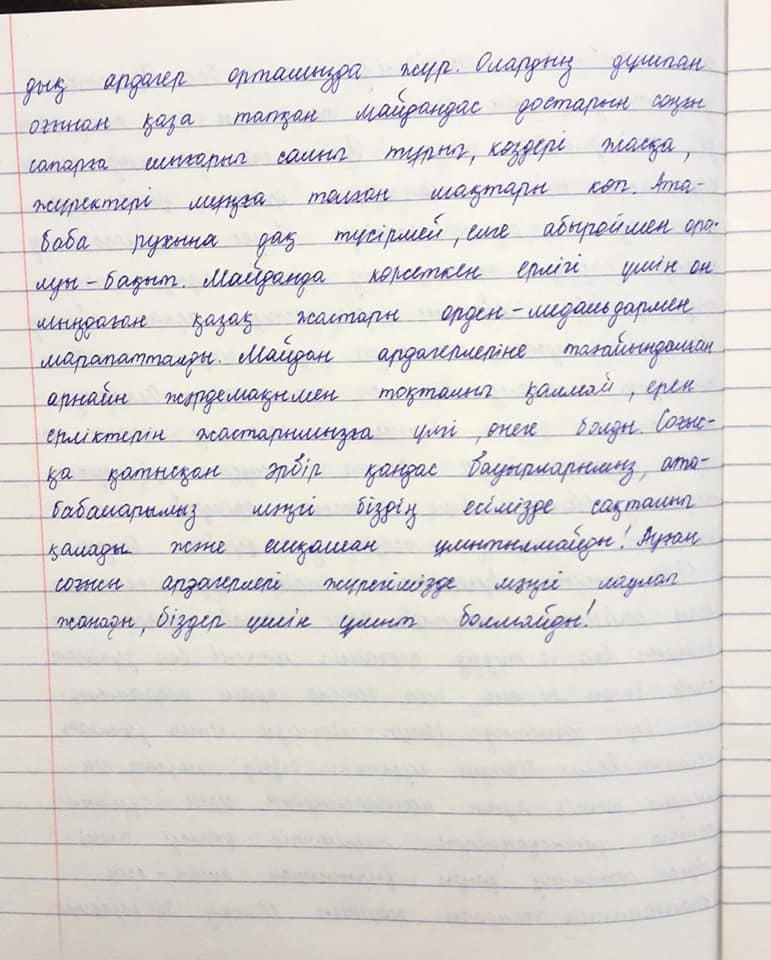 дық ардагер ортамызда жүр. Олардың дұшпан
оғынан қаза тапқан майдандас достарын соңғы
сапарға шығарып салып тұрып, көздері жасқа,
жүректері мұңға толған шақтары көп. Ата-
баба рухына дақ түсірмей, елге абыроймен ора-
луы - бақыт. Майданда көрсеткен ерлігі үшін он
мыңдаған қазақ жастары орден - медальдармен
марапатталды. Майдан ардагерлеріне тағайындалған
арнайы жәрдемақымен тоқталып қалмай, ерен
ерліктерін жастарымызға үлгі, өнеге болды. Соғыс-
қа қатысқан әрбір қандас бауырларымыз, ата-
бабаларымыз мәңгі біздің есімізде сақталып
қалады және ешқашан ұмытылмайды! Ауған
соғысы ардагерлері жүрегімізде мәңгі лаулап
жанады, біздер үшін ұмыт болмайды!